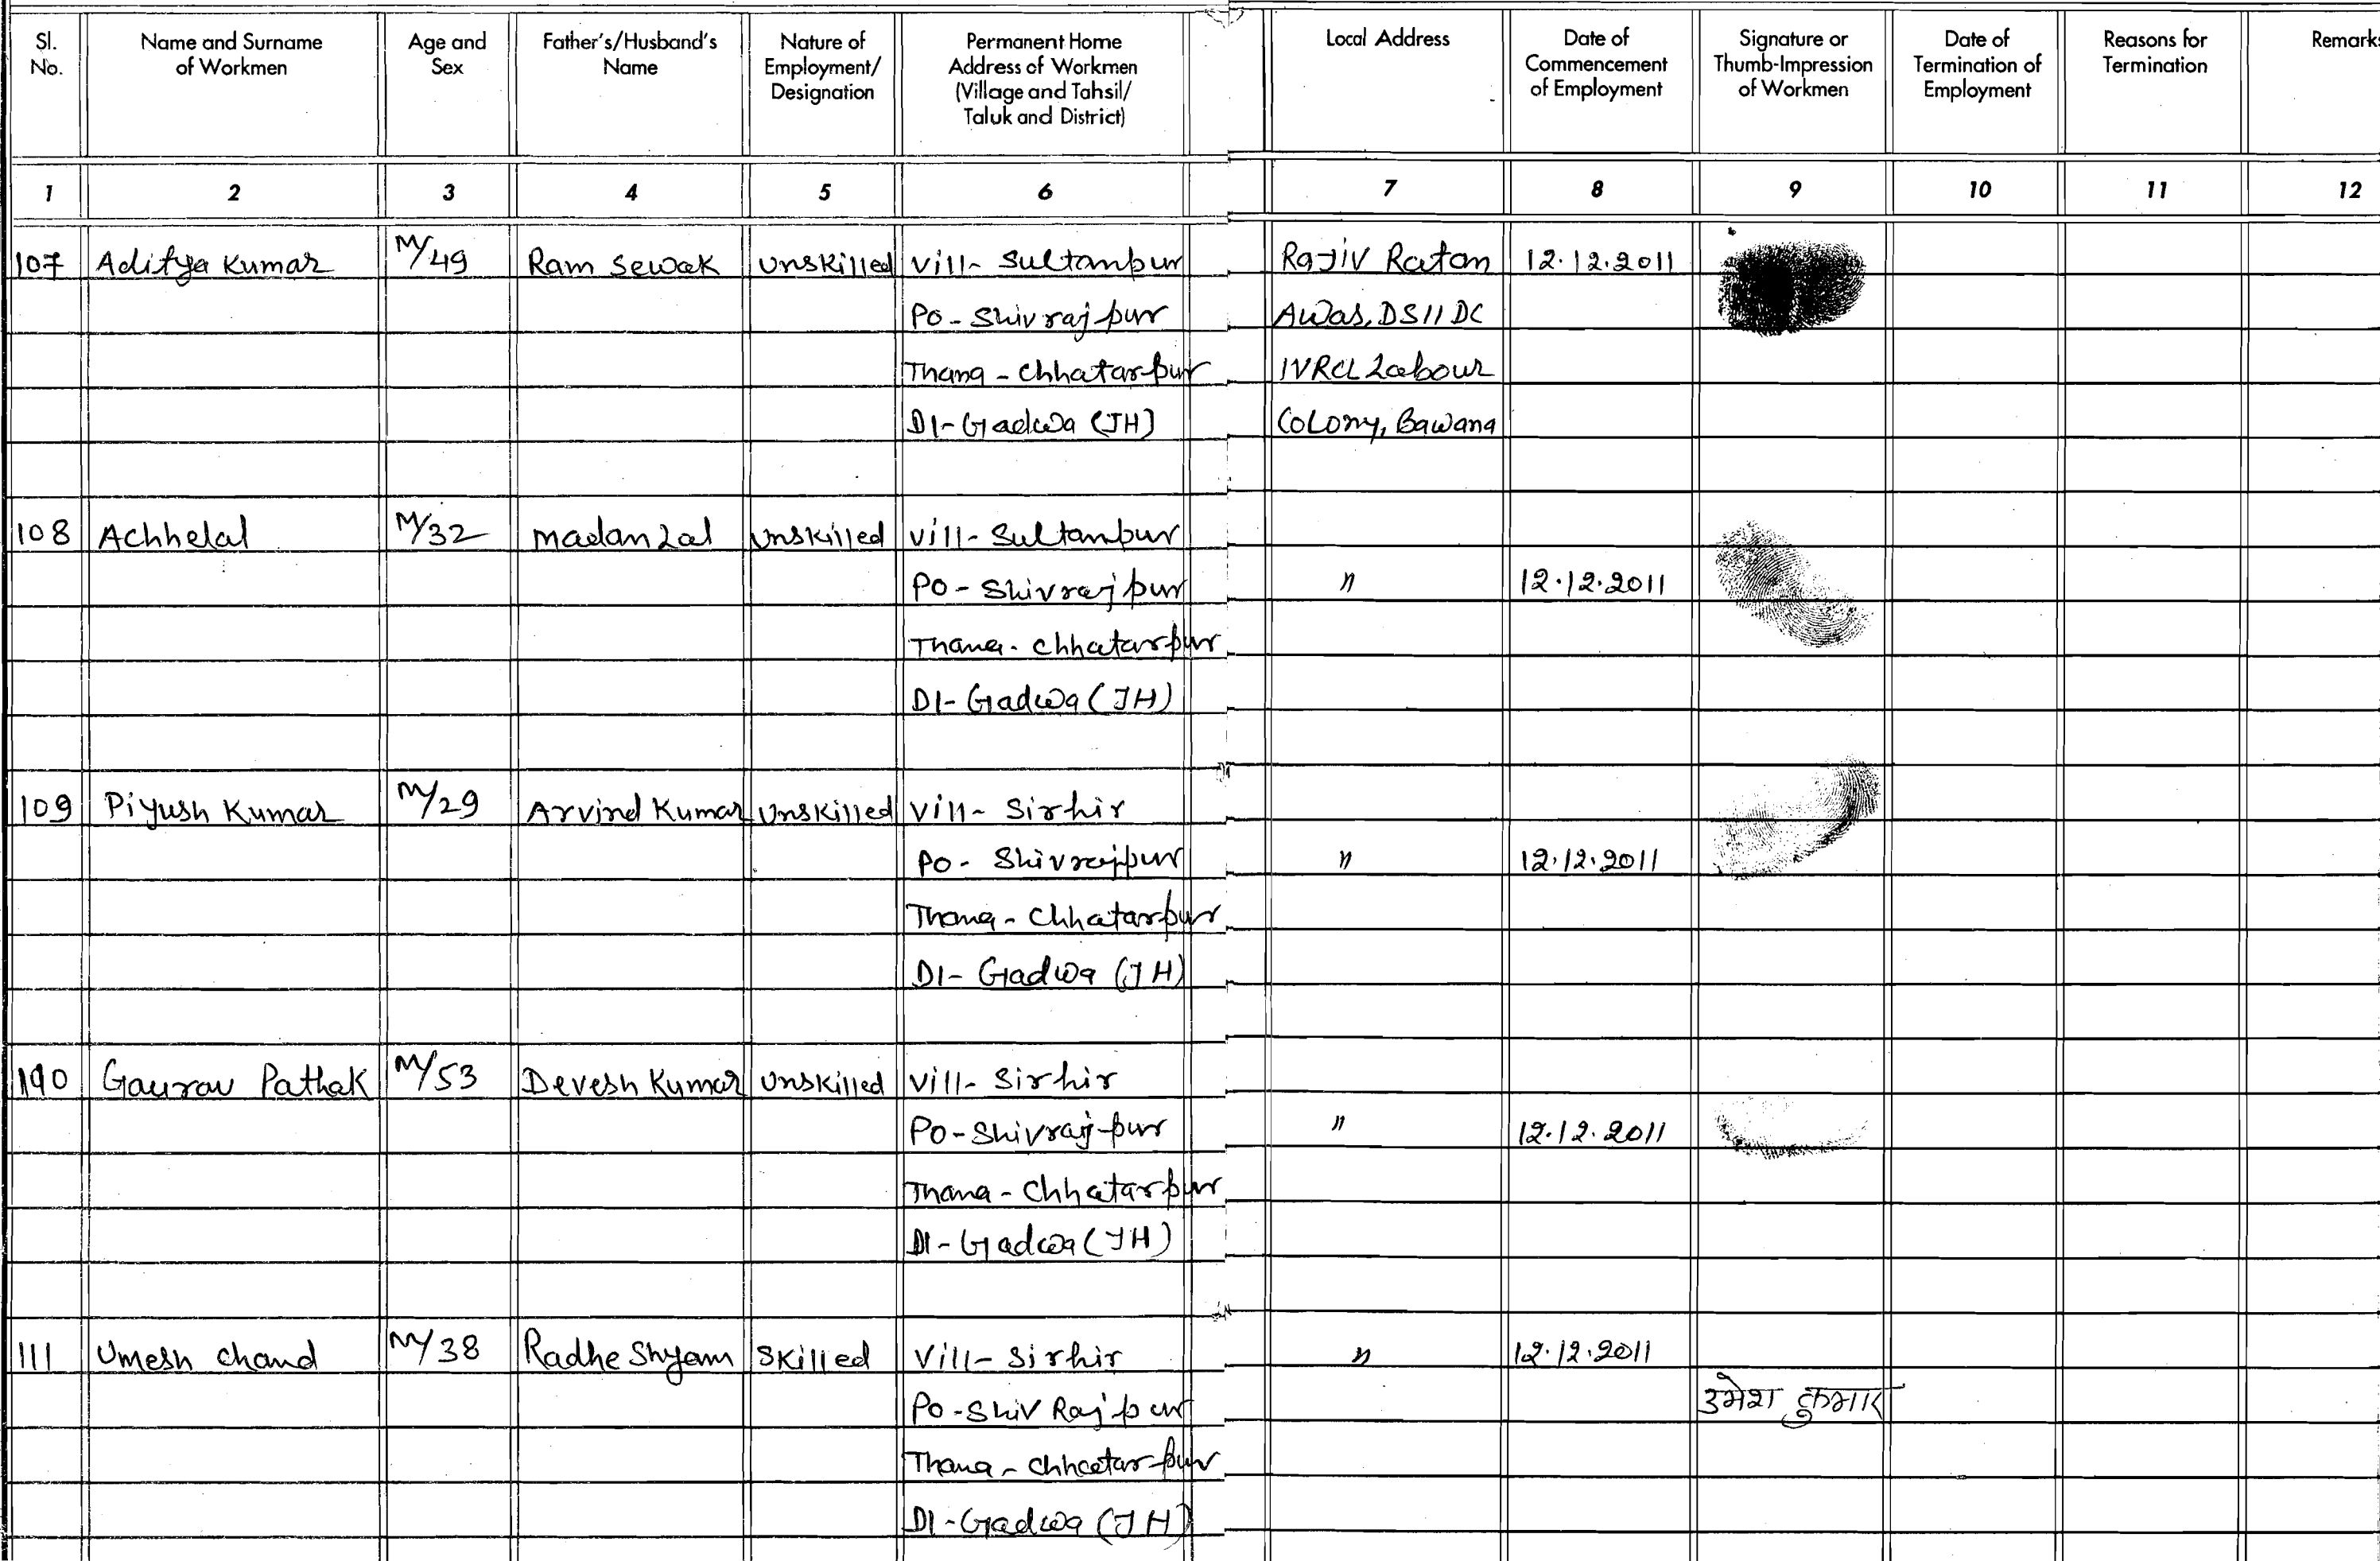 Sl. No.
Name and Surname of Workmen
Age and Sex
Father's/Husband's Name
Nature of Employment/ Designation
Permanent Home Address of Workmen (Village and Tahsil/ Taluk and District)
Local Address
Date of Commencement of Employment
Signature or Thumb-Impression of Workmen
Date of Termination of Employment
Reasons for Termination
Remarks
1 2 3 4 5 6 7 8 9 10 11 12
107 Aditya Kumar M/49 Ram Sewak Unskilled Vill- Sultanpur Rajiv Ratan 12.12.2011
Po - Shivrajpur Awas, DSIIDC
Thana - Chhatarpur IVRCL Labour
DI- Gadwa (JH) Colony, Bawana
108 Achhelal M/32 Madan Lal Unskilled Vill- Sultanpur
Po - Shivrajpur " 12.12.2011
Thana - Chhatarpur
DI- Gadwa (JH)
109 Piyush Kumar M/29 Arvind Kumar Unskilled Vill- Sirhir
Po - Shivrajpur " 12.12.2011
Thana - Chhatarpur
DI- Gadwa (JH)
190 Gaurav Pathak M/53 Devesh Kumar Unskilled Vill- Sirhir
Po - Shivrajpur " 12.12.2011
Thana - Chhatarpur
DI - Gadwa (JH)
111 Umesh Chand M/38 Radhe Shyam Skilled Vill- Sirhir " 12.12.2011
Po - Shiv Rajpur उमेश कुमार
Thana - Chhatarpur
DI - Gadwa (JH)